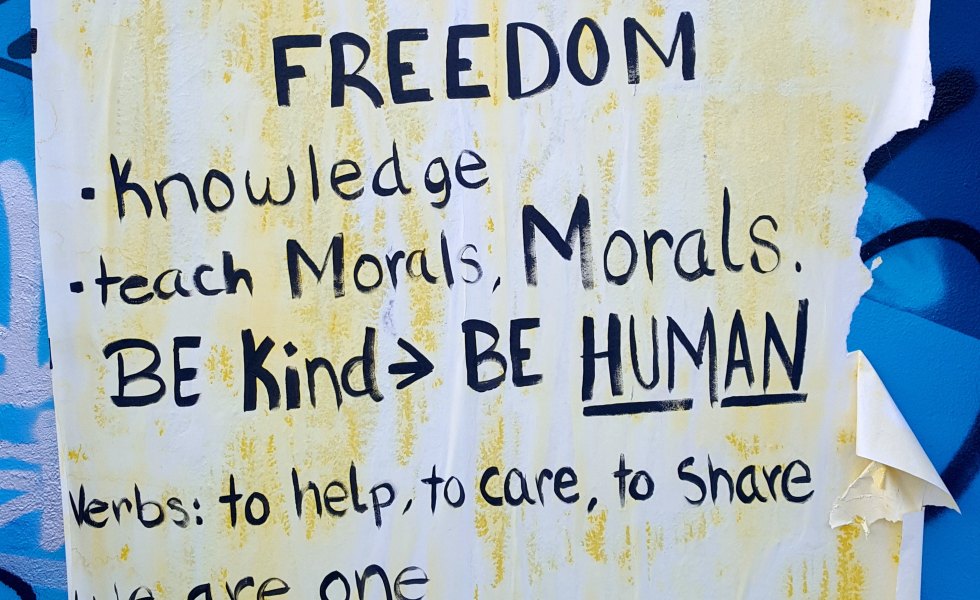 FREEDOM
• Knowledge
• teach Morals, Morals.
BE Kind > BE HUMAN
Verbs: to help, to care, to Share
we are one